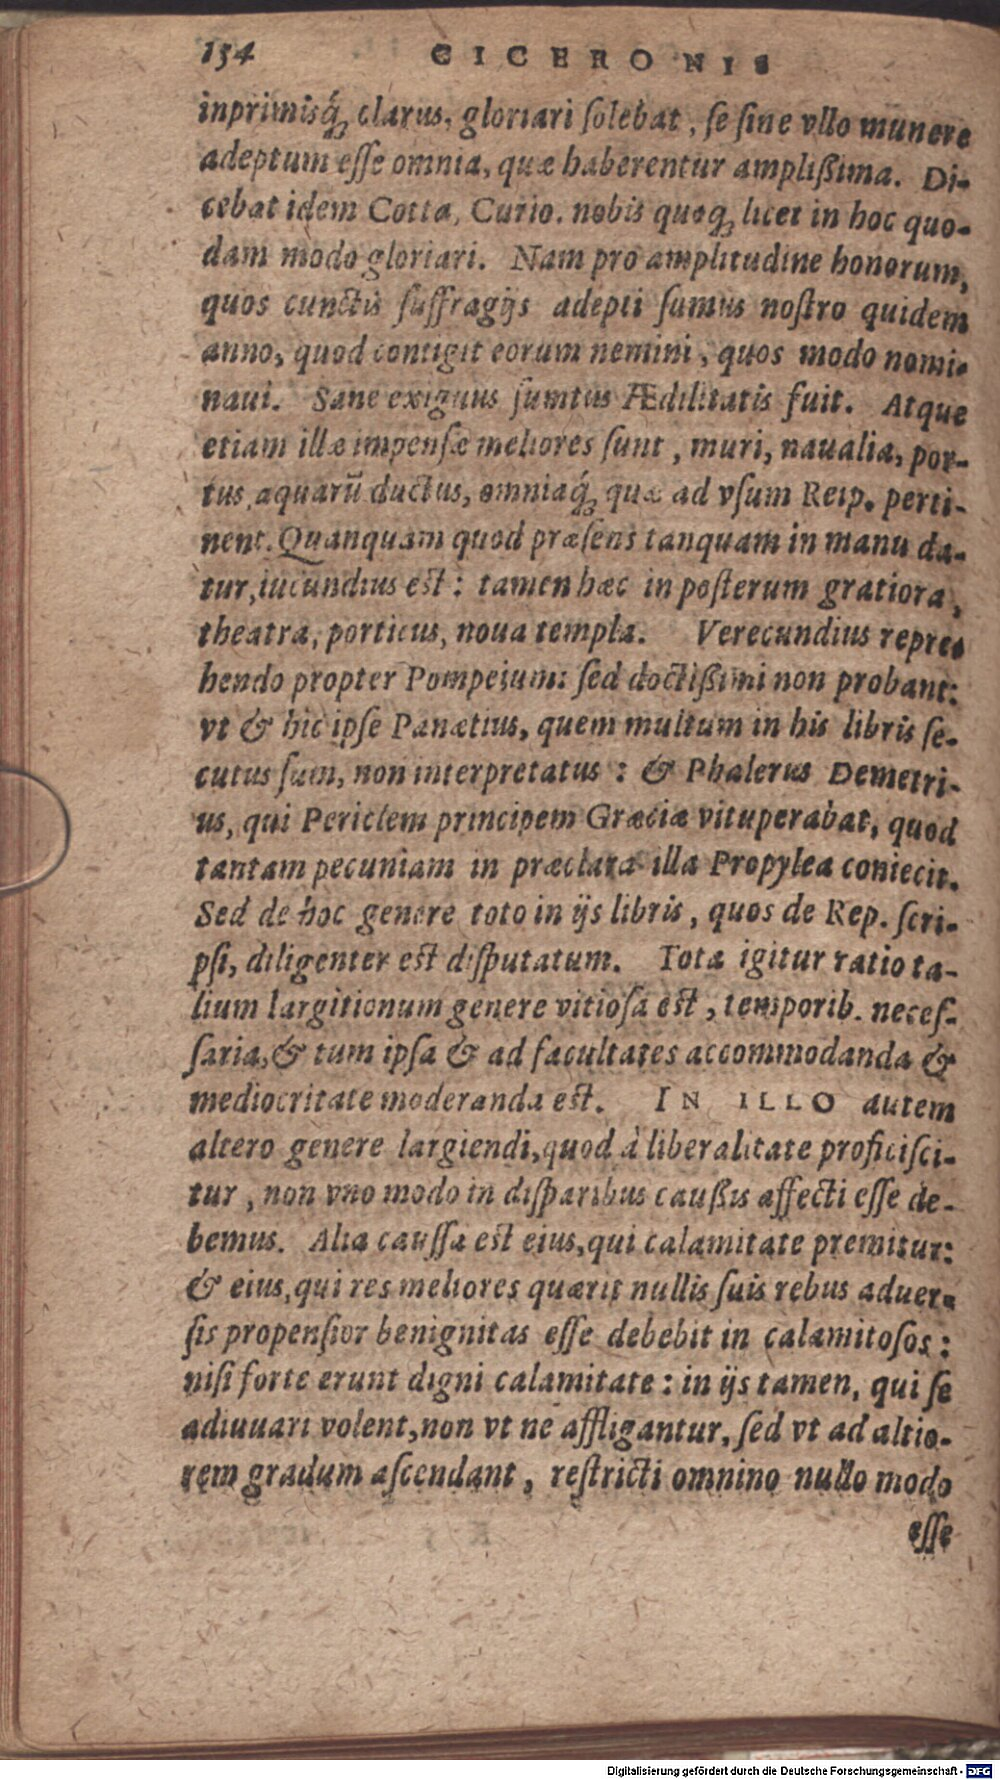 154 CICERONIS
inprimisq́; clarus, gloriari ſolebat, ſe ſine vllo munere
adeptum eſſe omnia, quæ haberentur ampliſsima. Di-
cebat idem Cotta, Curio. nobis quoq; licet in hoc quo-
dam modo gloriari. Nam pro amplitudine honorum,
quos cunctis ſuffragijs adepti ſumus noſtro quidem
anno, quod contigit eorum nemini, quos modo nomi-
naui. Sane exiguus ſumtus Ædilitatis fuit. Atque
etiam illæ impenſæ meliores ſunt, muri, naualia, por-
tus, aquarū ductus, omniaq́; quæ ad vſum Reip. perti-
nent. Quanquam quod præſens tanquam in manu da-
tur, iucundius est: tamen hæc in poſterum gratiora,
theatra, porticus, noua templa. Verecundius repre-
hendo propter Pompeium: ſed doctiſsimi non probant:
vt & hic ipſe Panætius, quem multum in his libris ſe-
cutus ſum, non interpretatus: & Phalerus Demetri-
us, qui Periclem principem Græciæ vituperabat, quod
tantam pecuniam in præclara illa Propylea coniecit.
Sed de hoc genere toto in ijs libris, quos de Rep. ſcri-
pſi, diligenter est diſputatum. Tota igitur ratio ta-
lium largitionum genere vitioſa est, temporib. neceſ-
ſaria, & tum ipſa & ad facultates accommodanda &
mediocritate moderanda est. IN ILLO autem
altero genere largiendi, quod à liberalitate proficiſci-
tur, non vno modo in diſparibus cauſsis affecti eſſe de-
bemus. Alia cauſſa est eius, qui calamitate premitur:
& eius, qui res meliores quærit nullis ſuis rebus aduer-
ſis propenſior benignitas eſſe debebit in calamitoſos:
niſi forte erunt digni calamitate: in ijs tamen, qui ſe
adiuuari volent, non vt ne affligantur, ſed vt ad altio-
rem gradum aſcendant, reſtricti omnino nullo modo
eſſe
Digitalisierung gefördert durch die Deutsche Forschungsgemeinschaft - DFG